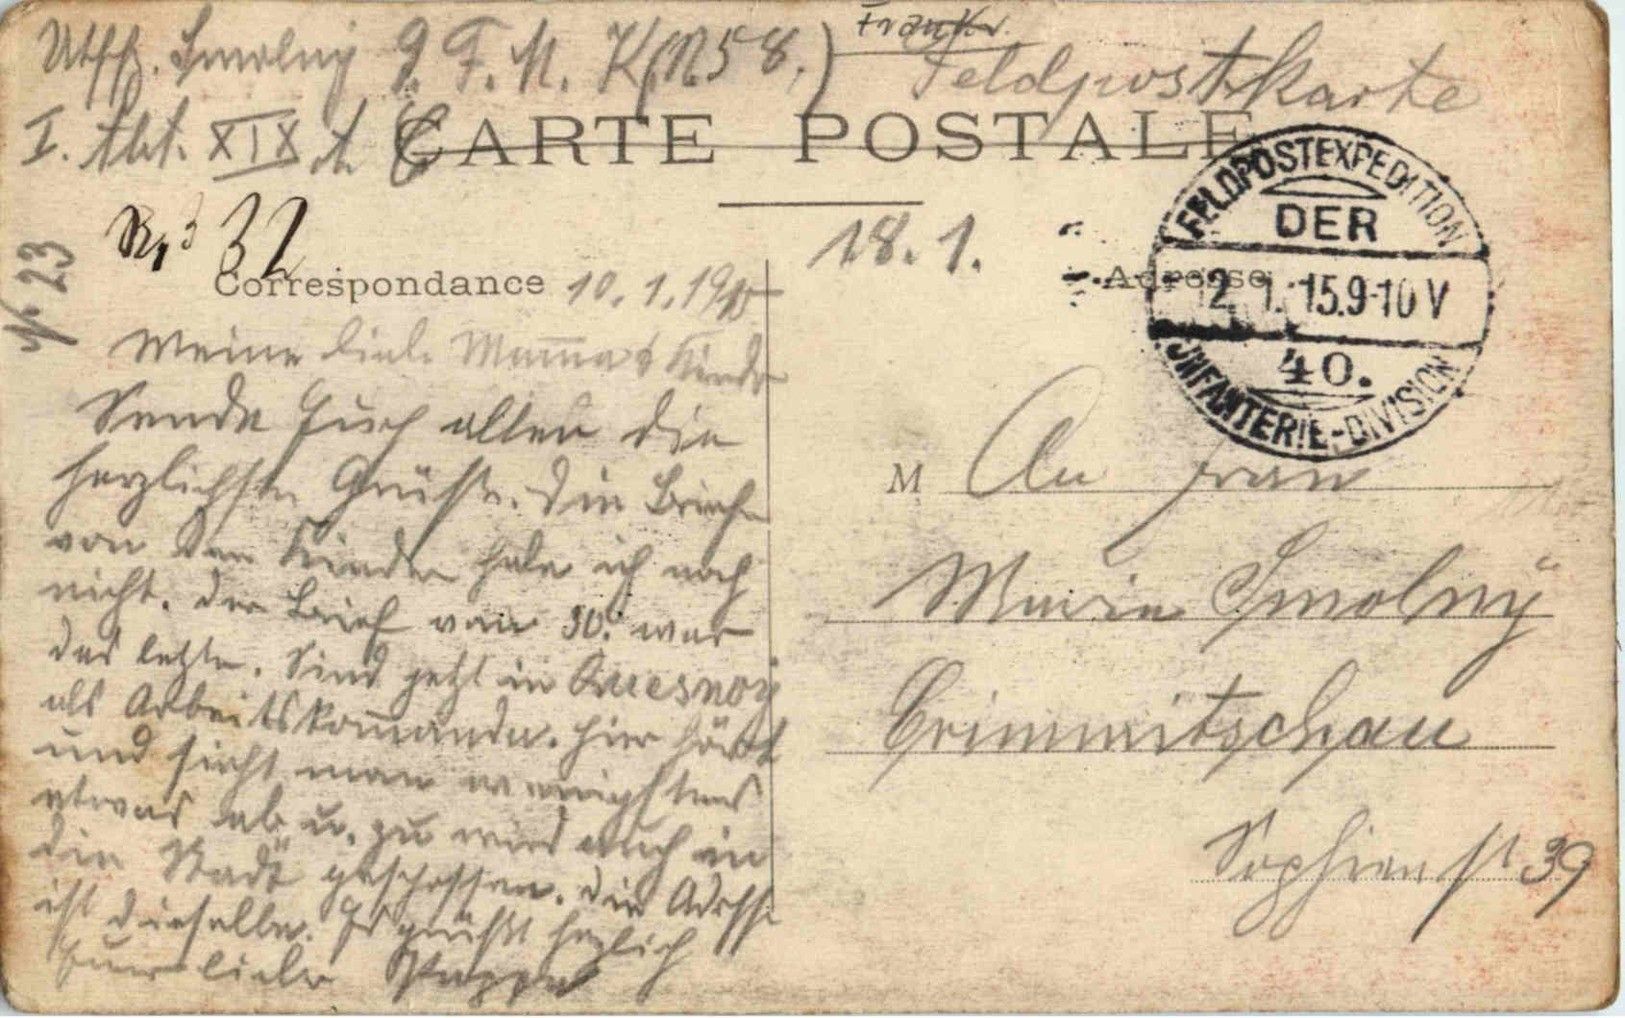 Utffz. Smolny 9. F. M. K (N58.) Frankr. Feldpostkarte
I. Abt. XIX A. C
CARTE POSTALE
32
18. 1.
№ 23
Correspondance 10. 1. 1915
Adresse
FELDPOSTEXPEDITION
DER
12. 1. 15. 9-10 V
40.
INFANTERIE-DIVISION
Meine liebe Mama & Kinder
Sende Euch allen die
herzlichsten Grüße. Die Briefe
von den Kindern habe ich noch
nicht. Der Brief vom 30. war
das letzte. Sind jetzt in Quesnoy
als Arbeitskommando. Hier hört
und sieht man wenigstens
etwas ab u. zu wird auch in
die Stadt geschossen. Die Adresse
ist dieselbe. Es grüßt herzlich
Euer lieber Pappa
M An Frau
Marie Smolny
Crimmitschau
Sophienst 39